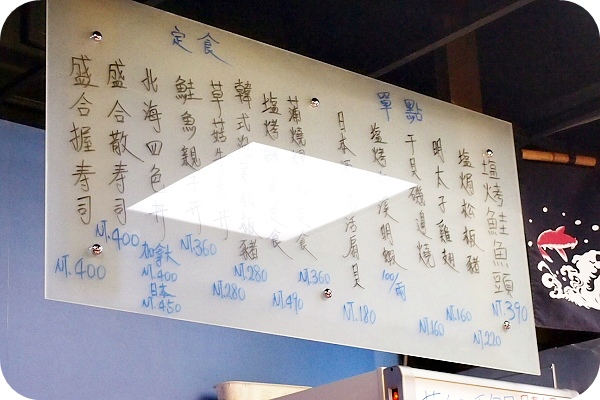 定食
盛合握寿司
NT.400
盛合散寿司
NT.400
北海四色丼
加拿大
NT.400
日本
NT.450
鮭魚親子丼
NT.360
草菇牛 丼
NT.280
韓式 板豬
NT.280
塩烤 食
NT.490
蒲燒 食
NT.360
單點
日本 活扇貝
NT.180
塩烤 溪胡蝦
100/兩
干貝磯邊燒
NT.160
明太子雞翅
NT.160
塩焗松板豬
NT.220
塩烤鮭魚頭
NT.390